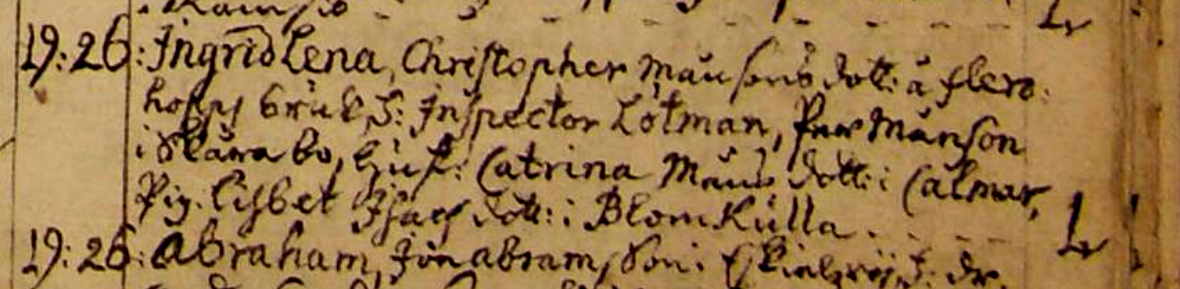 19: 26: Ingrid Lena, Christopher Månsons dott: å Flero:
hopps bruk, S: Inspector Lötman, Per Månson
i Skärabo, Hust: Catrina Måns dott: i Calmar,
Pig. Lisbet Isacs dott: i Blomkulla - - - - L
19: 26: Abraham, Jon abram, Son i